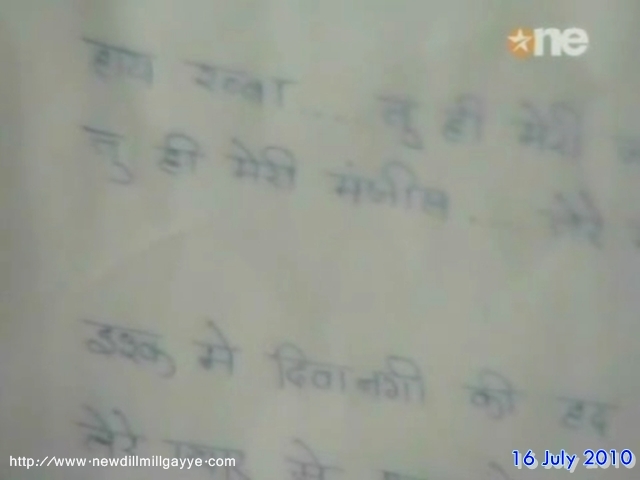 one
हाय रब्बा ... तु ही मेरी
तु ही मेरी मंजील ... तेरे
इश्क मे दिवानगी की हद
तेरे प्यार मे
http://www.newdillmillgayye.com
16 July 2010